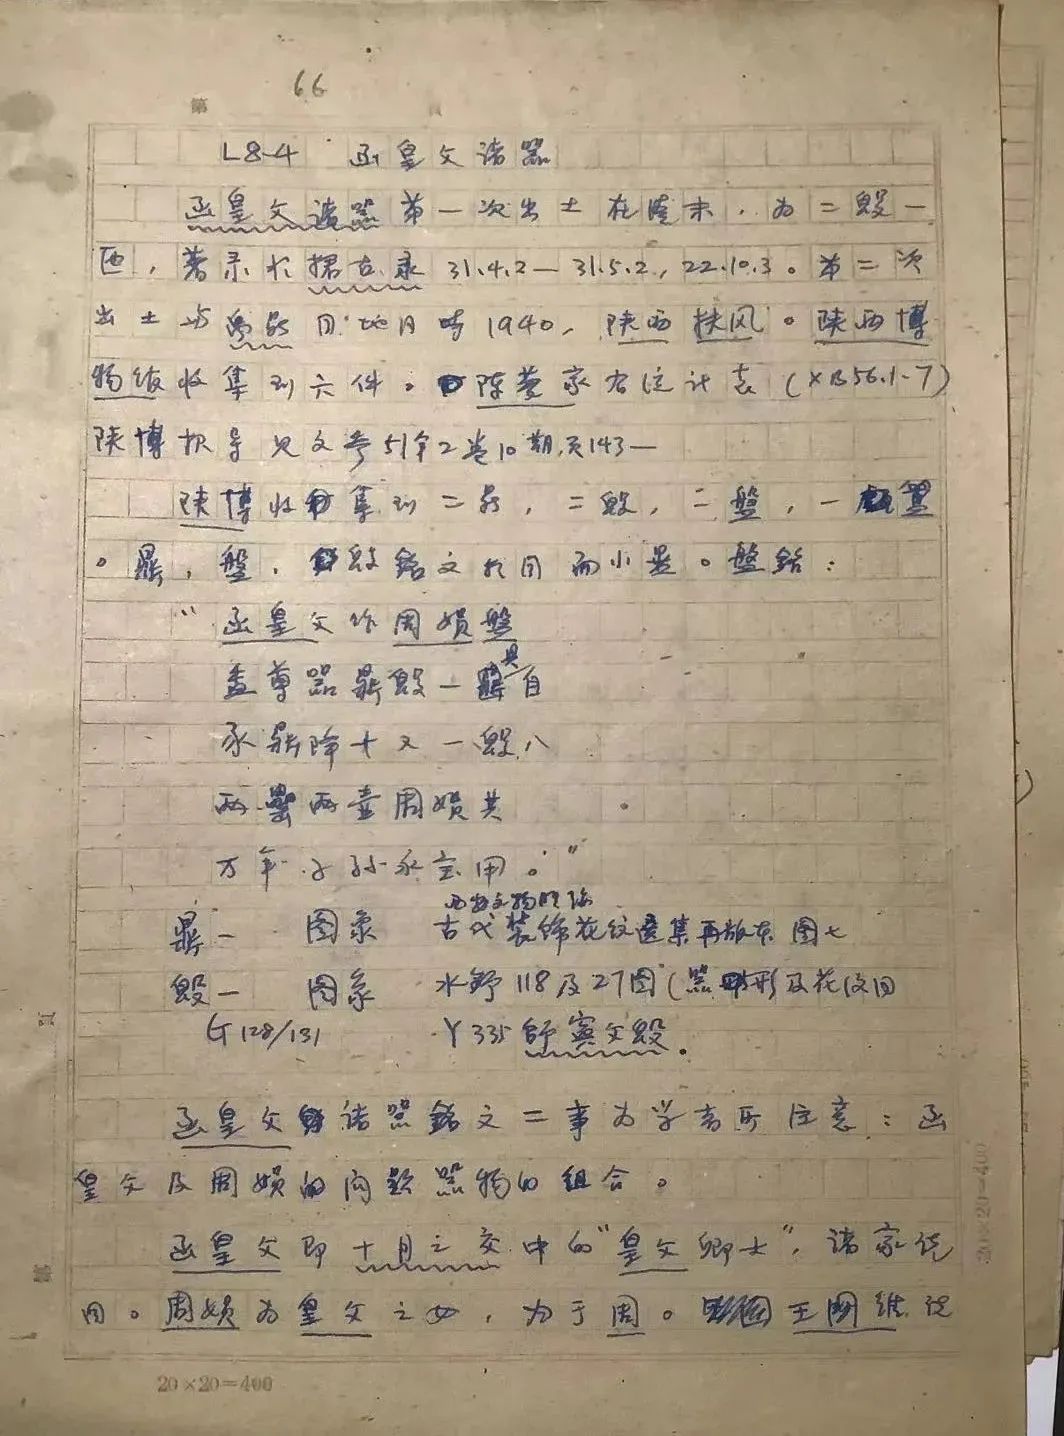 66
第
L8-4 函皇父诸器
函皇父诸器第一次出土在清末，为二𣪘一
匜，著录于攈古录 31.4.2—31.5.2，22.10.3。第二次
出土与禹鼎同地同时1940，陕西扶风。陕西博
物馆收集到六件。陈梦家有统计表(XB56.1.7)
陕博报导见文参51年2卷10期，页143—
陕博收集到二鼎，二𣪘，二盤，一
。鼎，盤，𣪘銘文相同而小異。盤銘：
“函皇父作周娟盤
盉尊器鼎𣪘一具自
豕鼎降十又一𣪘八
两罍两壶周娟其
万年子子孙永宝用。”
鼎一 图象 古代装饰花纹選集再版本 图七
𣪘一 图象 水野118及27图(器形及花纹同
G128/131 Y335 𣪘。
函皇父诸器銘文二事为学者所注意：函
皇父及周娟的问题器物的组合。
函皇父即十月之交中的“皇父卿士”，诸家说
同。周娟为皇父之女，为于周。王國維说
第
頁
20×20=400
20×20=400